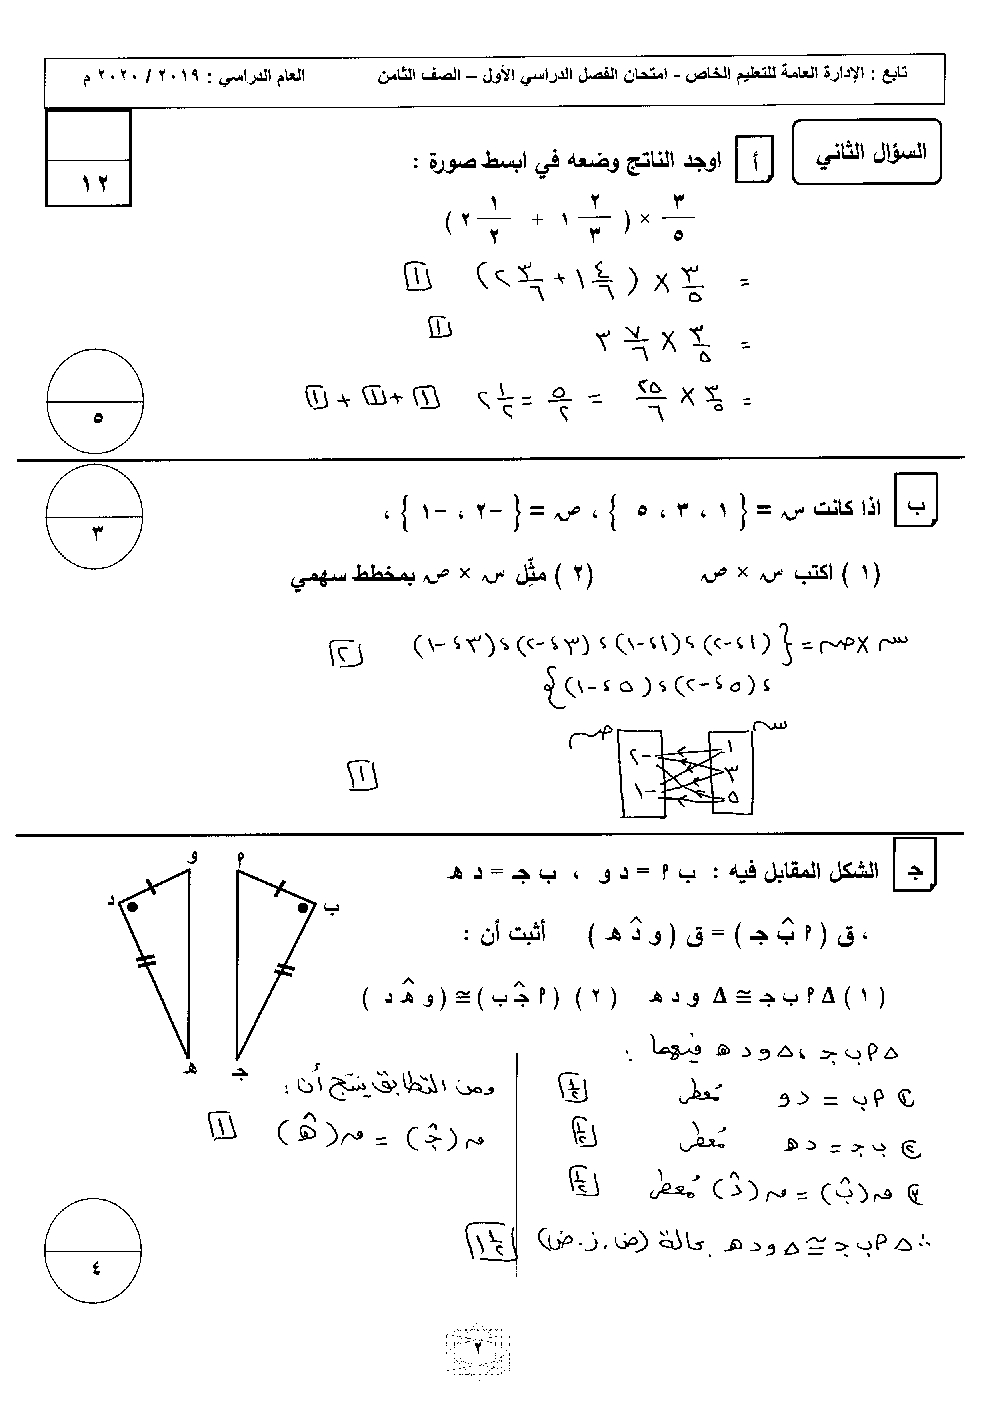 تابع : الإدارة العامة للتعليم الخاص - امتحان الفصل الدراسي الأول – الصف الثامن العام الدراسي : ٢٠١٩ / ٢٠٢٠ م
١٢
السؤال الثاني
أ اوجد الناتج وضعه في ابسط صورة :
٣/٥ × ( ١ ٢/٣ + ٢ ١/٢ )
= ٣/٥ × ( ١ ٤/٦ + ٢ ٣/٦ ) ١
= ٣/٥ × ٣ ٧/٦ ١
= ٣/٥ × ٢٥/٦ = ٥/٢ = ٢ ١/٢ ١ + ١ + ١
٥
ب اذا كانت س = { ١ ، ٣ ، ٥ } ، ص = { -٢ ، -١ } ،
٣
( ١ ) اكتب س × ص ( ٢ ) مثّل س × ص بمخطط سهمي
س × ص = { (١ ، -٢) ، (١ ، -١) ، (٣ ، -٢) ، (٣ ، -١) ٢
، (٥ ، -٢) ، (٥ ، -١) }
س ص
١ -٢
٣
٥ -١
١
ج الشكل المقابل فيه : ب م = د و ، ب جـ = د هـ
، ق ( م ب̂ جـ ) = ق ( و د̂ هـ ) أثبت أن :
( ١ ) Δ م ب جـ ≅ Δ و د هـ ( ٢ ) ( م ج̂ ب ) ≅ ( و ه̂ د )
م ب جـ
و د هـ
Δ م ب جـ ، Δ و د هـ فيهما :
① م ب = د و مُعطى ١/٢
② ب جـ = د هـ مُعطى ١/٢
③ ق (ب̂) = ق (د̂) مُعطى ١/٢
∴ Δ م ب جـ ≅ Δ و د هـ بحالة (ض . ز . ض) ١ ١/٢
ومن التطابق ينتج أن :
ق (ج̂) = ق (ه̂) ١
٤
٢